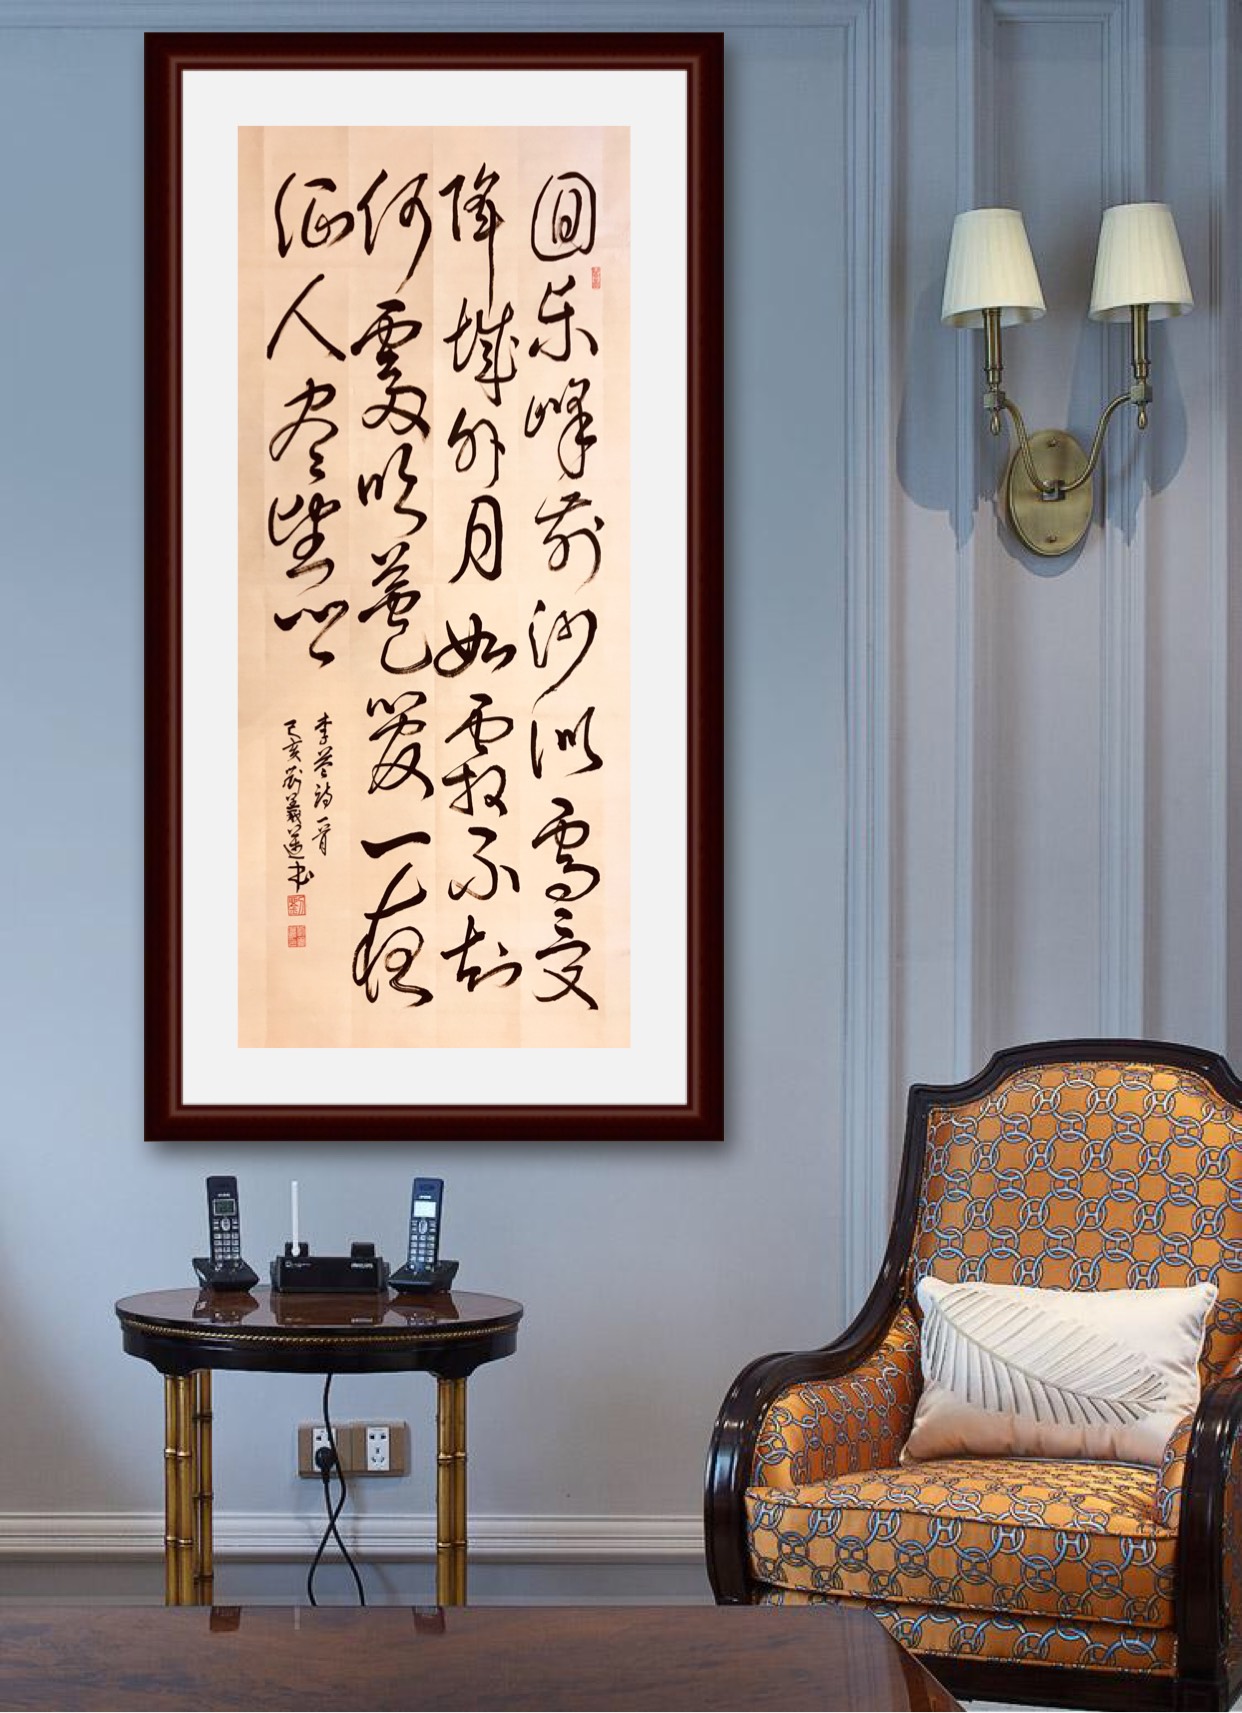 回乐峰前沙似雪受
降城外月如霜不知
何處吹芦管一夜
征人尽望乡
李益诗一首
己亥 書